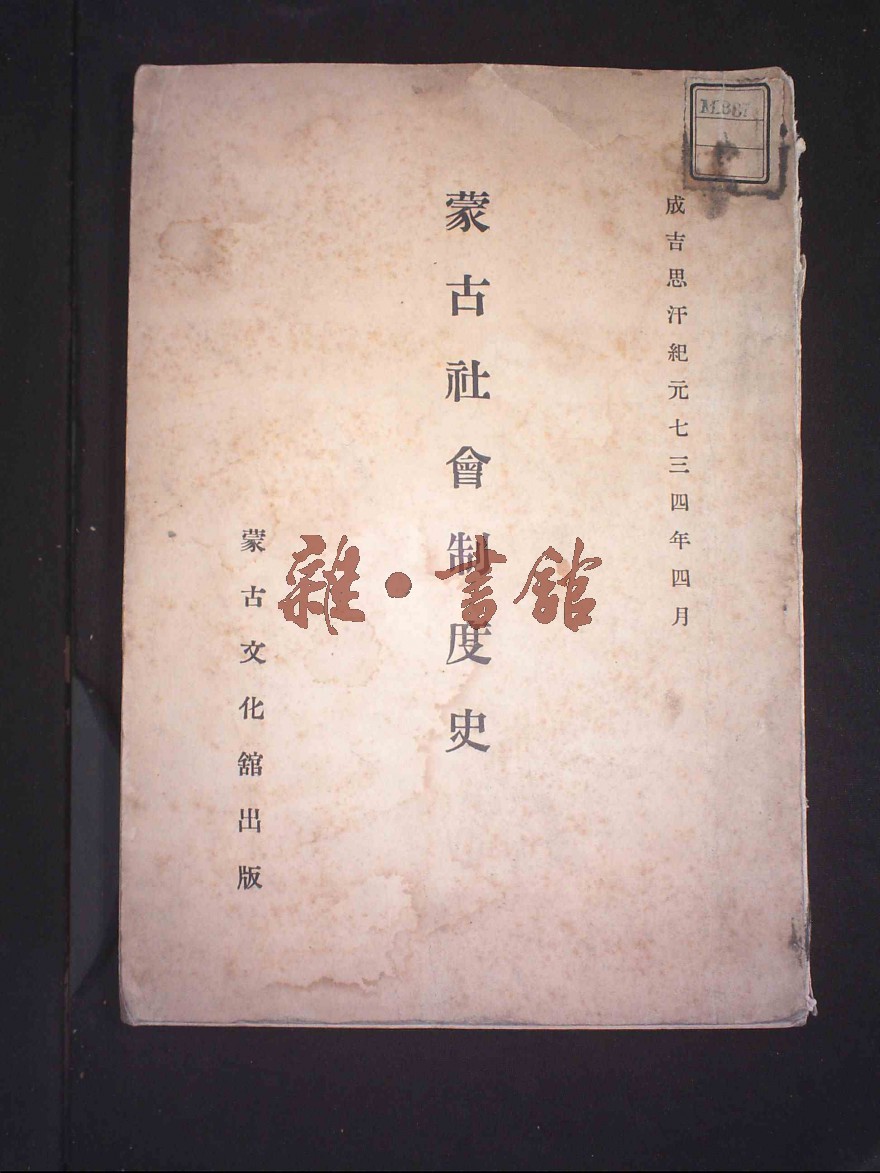 成吉思汗紀元七三四年四月
蒙古社會制度史
蒙古文化舘出版
雜·書舘